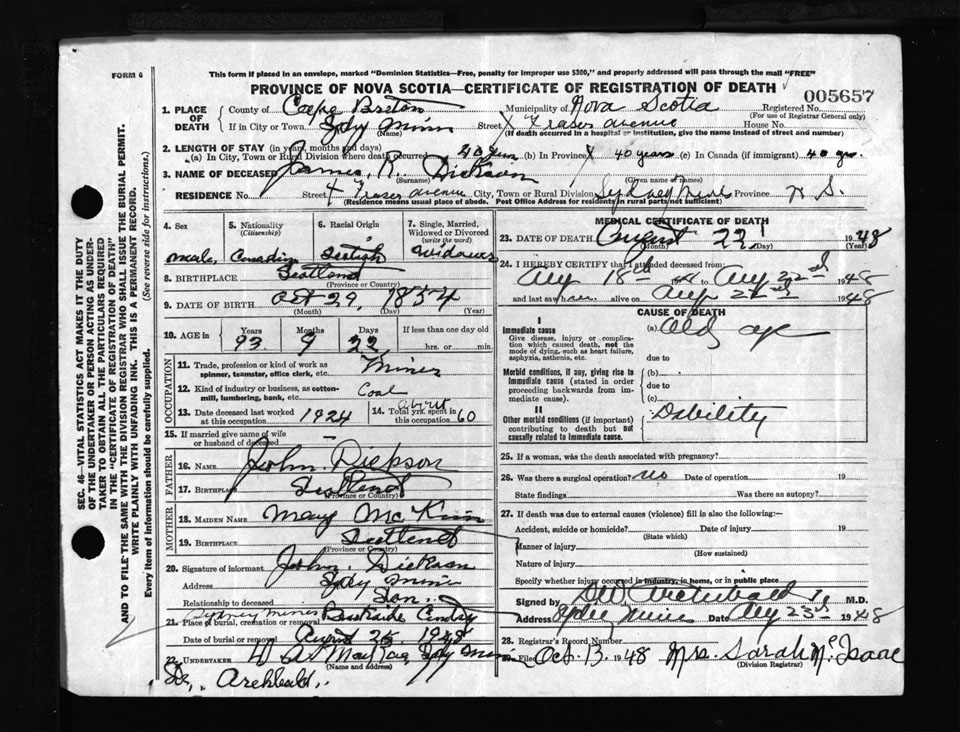 FORM 6
This form if placed in an envelope, marked "Dominion Statistics—Free, penalty for improper use $300," and properly addressed will pass through the mail "FREE"
PROVINCE OF NOVA SCOTIA—CERTIFICATE OF REGISTRATION OF DEATH
005657
1. PLACE OF DEATH
County of Cape Breton Municipality of Nova Scotia Registered No.
(For use of Registrar General only)
If in City or Town Sydy Mines Street Fraser avenue House No.
(Name) (If death occurred in a hospital or institution, give the name instead of street and number)
2. LENGTH OF STAY (in years, months and days)
(a) In City, Town or Rural Division where death occurred 40 years (b) In Province 40 years (c) In Canada (if immigrant) 40 yrs.
3. NAME OF DECEASED James, R. Dickson
(Surname) (Given names)
RESIDENCE No. Street Fraser avenue City, Town or Rural Division Sydney Mines Province N S.
(Residence means usual place of abode. Post Office Address for residents in rural parts not sufficient)
4. Sex
5. Nationality (Citizenship)
6. Racial Origin
7. Single, Married, Widowed or Divorced (write the word)
male Canadian Scotish Widower
8. BIRTHPLACE Scotland
(Province or Country)
9. DATE OF BIRTH Oct 29, 1854
(Month) (Day) (Year)
10. AGE in Years Months Days If less than one day old
93 9 22 hrs. or min.
OCCUPATION
11. Trade, profession or kind of work as spinner, teamster, office clerk, etc. Miner
12. Kind of industry or business, as cotton-mill, lumbering, bank, etc. Coal
13. Date deceased last worked at this occupation 1924
14. Total yrs. spent in about 60
15. If married give name of wife or husband of deceased
FATHER
16. NAME John Dickson
17. BIRTHPLACE Scotland
(Province or Country)
MOTHER
18. MAIDEN NAME Mary McKim
19. BIRTHPLACE Scotland
(Province or Country)
20. Signature of informant John Dickson
Address Sydy Mines
Relationship to deceased Son
21. Place of burial, cremation or removal Sydney Mines Brookside
Date of burial or removal August 25, 1948
22. UNDERTAKER Sydy Mines
(Name and address)
Dr. Archbald.
MEDICAL CERTIFICATE OF DEATH
23. DATE OF DEATH August 22 1948
(Month) (Day) (Year)
24. I HEREBY CERTIFY that I attended deceased from:
Aug 18th to Aug 22nd 1948
and last saw alive on Aug 22nd 1948
CAUSE OF DEATH
I
Immediate cause
Give disease, injury or complication which caused death, not the mode of dying, such as heart failure, asphyxia, asthenia, etc.
(a) Old age
due to
Morbid conditions, if any, giving rise to immediate cause (stated in order proceeding backwards from immediate cause).
(b)
due to
(c)
II
Other morbid conditions (if important) contributing to death but not causally related to immediate cause.
Debility
25. If a woman, was the death associated with pregnancy?
26. Was there a surgical operation? no Date of operation 19
State findings Was there an autopsy?
27. If death was due to external causes (violence) fill in also the following:—
Accident, suicide or homicide? Date of injury 19
(State which)
Manner of injury
(How sustained)
Nature of injury
Specify whether injury occurred in industry, in home, or in public place
Signed by Archibald M.D.
Address Sydney Mines Date Aug 23rd 1948
28. Registrar's Record Number
29. Filed Oct. 13 1948 Mrs. Sarah McIsaac
(Division Registrar)
SEC. 46—VITAL STATISTICS ACT MAKES IT THE DUTY OF THE UNDERTAKER OR PERSON ACTING AS UNDERTAKER TO OBTAIN ALL THE PARTICULARS REQUIRED IN THE "CERTIFICATE OF REGISTRATION OF DEATH" AND TO FILE THE SAME WITH THE DIVISION REGISTRAR WHO SHALL ISSUE THE BURIAL PERMIT.
WRITE PLAINLY WITH UNFADING INK. THIS IS A PERMANENT RECORD.
Every item of information should be carefully supplied. (See reverse side for instructions.)